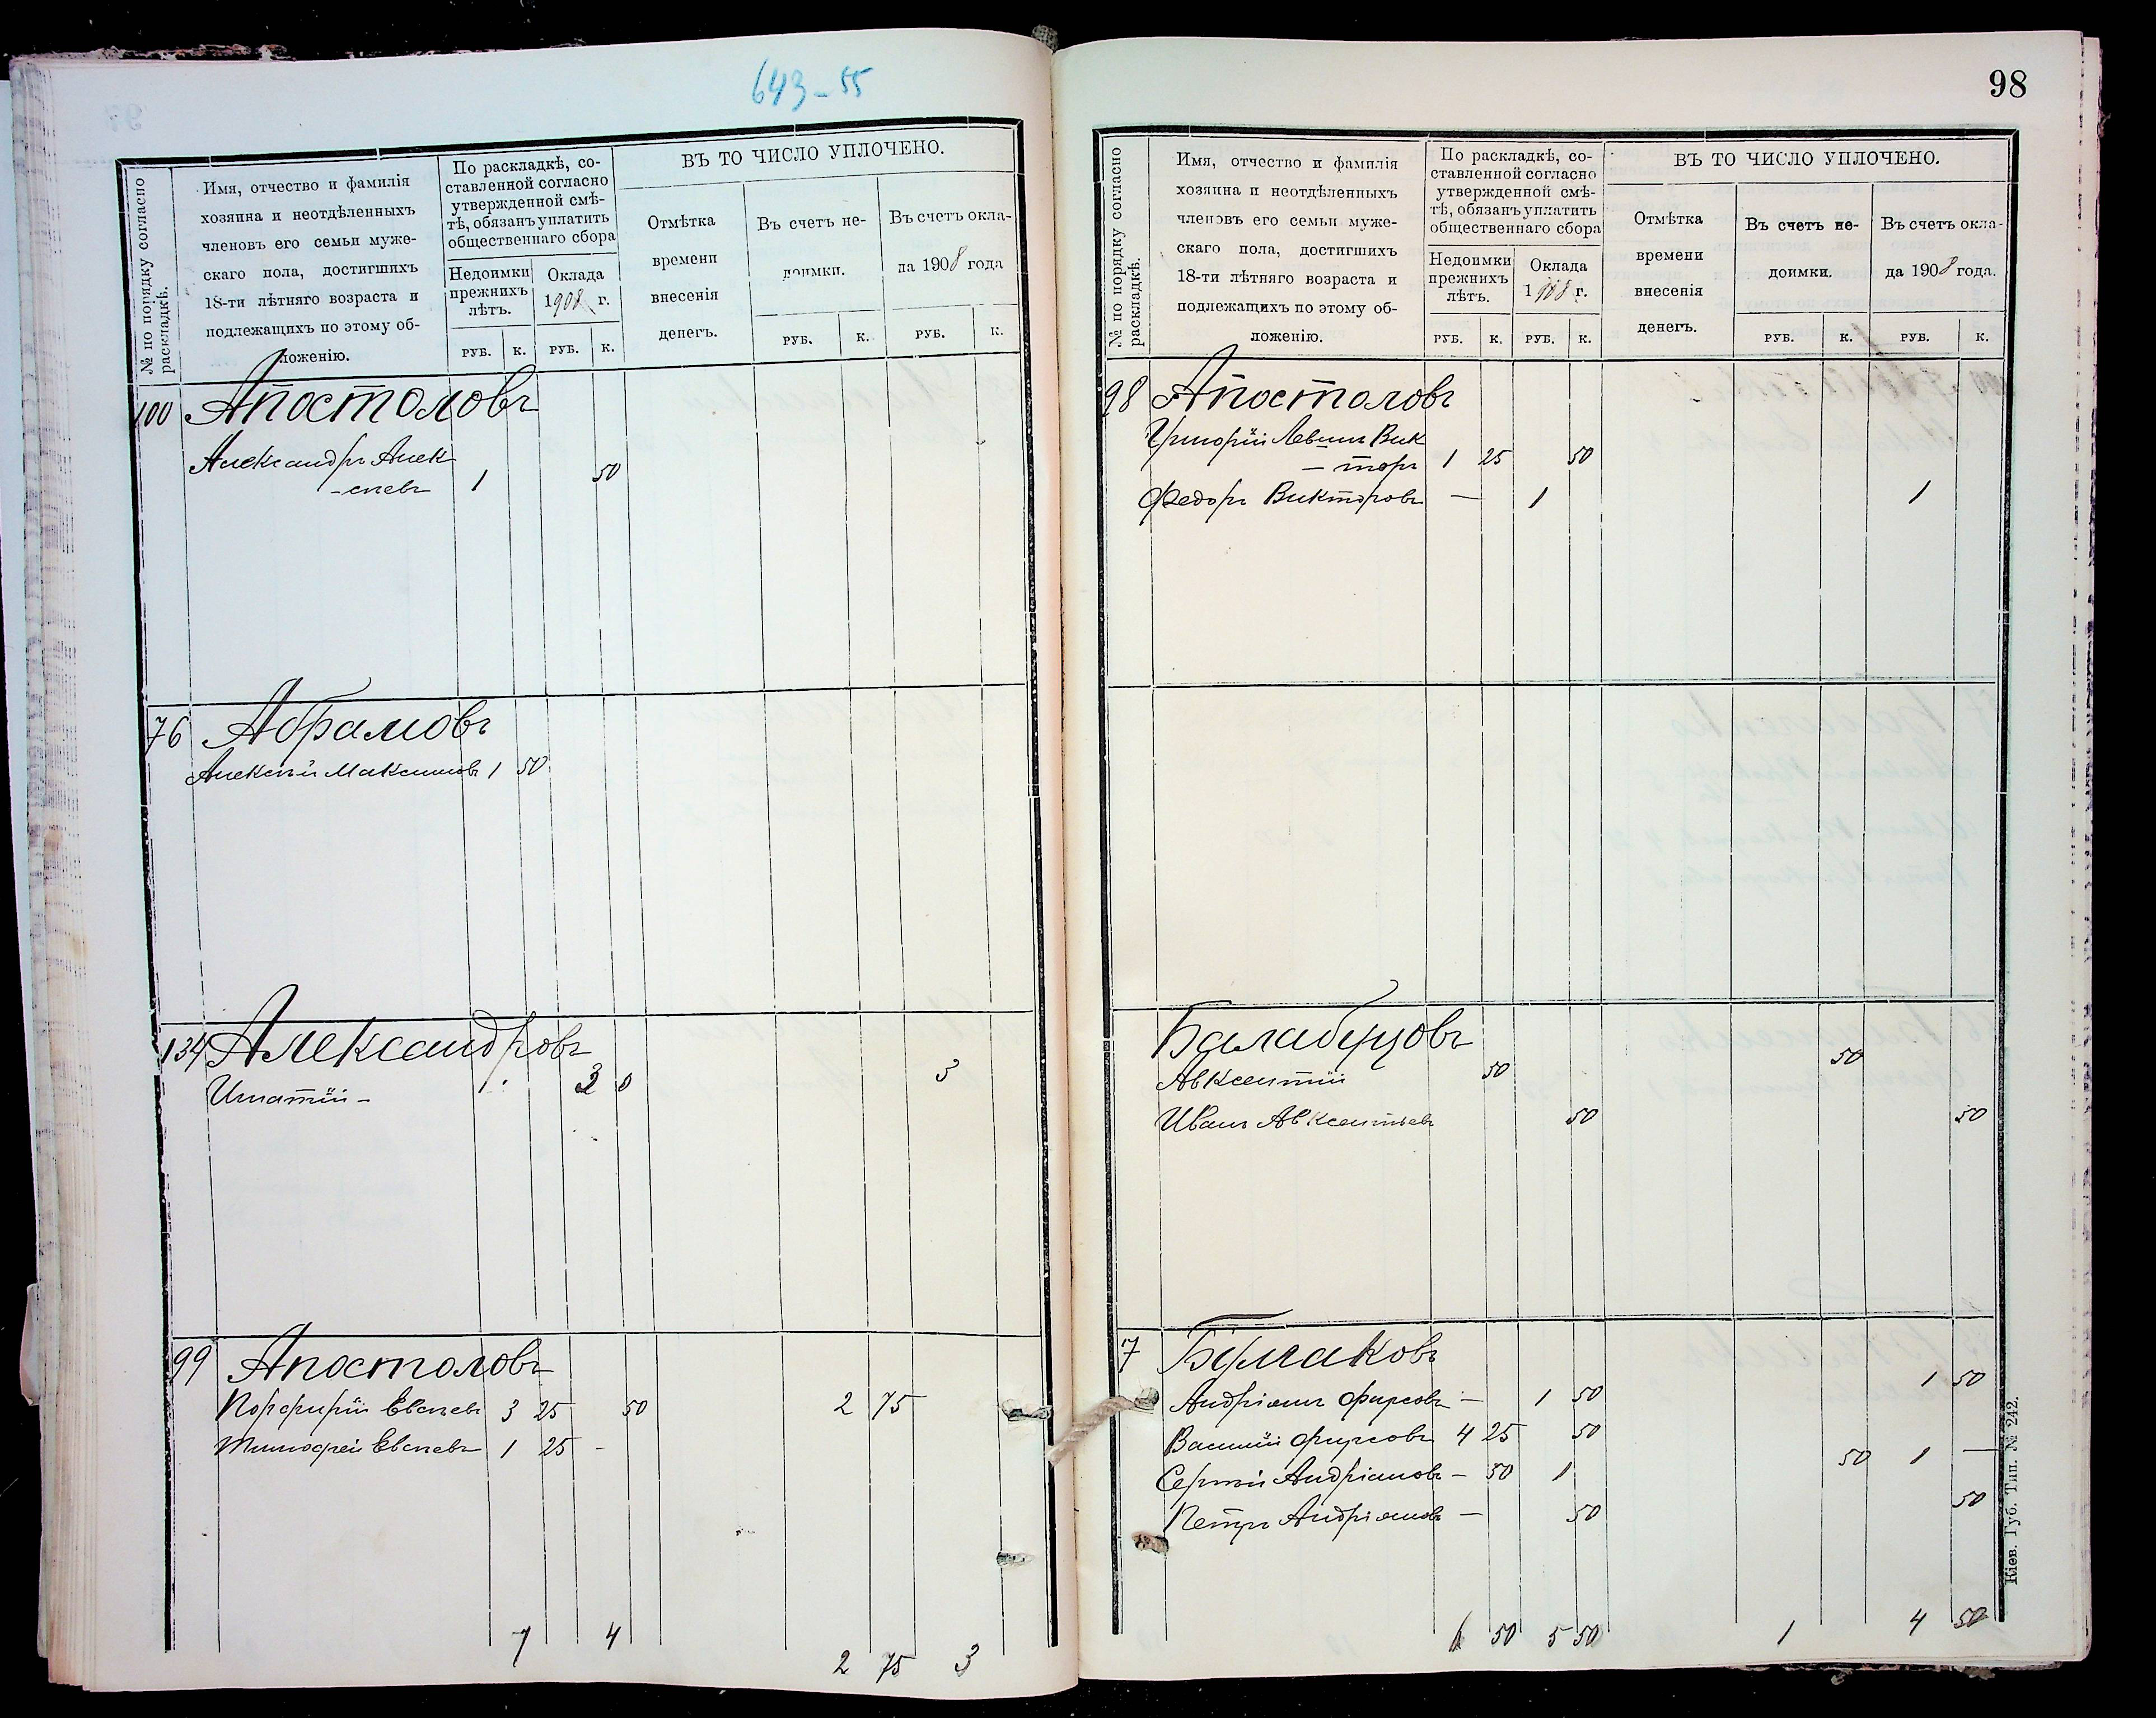 643-55
№ по порядку согласно раскладкѣ.
Имя, отчество и фамилія
хозяина и неотдѣленныхъ
членовъ его семьи муже-
скаго пола, достигшихъ
18-ти лѣтняго возраста и
подлежащихъ по этому об-
ложенію.
По раскладкѣ, со-
ставленной согласно
утвержденной смѣ-
тѣ, обязанъ уплатить
общественнаго сбора
Недоимки
прежнихъ
лѣтъ.
Оклада
1908 г.
ВЪ ТО ЧИСЛО УПЛОЧЕНО.
Отмѣтка
времени
внесенія
денегъ.
Въ счетъ не-
доимки.
Въ счетъ окла-
да 1908 года
РУБ. К. РУБ. К. РУБ. К. РУБ. К.
100 Апостоловъ
Александръ Алек
-сѣевъ 1 50
76 Абрамовъ
Алексѣй Максимовъ 1 50
134 Александровъ
Игнатій -
99 Апостоловъ
Порфирій Евсѣевъ 3 25 50 2 75
Тимофей Евсѣевъ 1 25 -
7 4
2 75 3
98
№ по порядку согласно раскладкѣ.
Имя, отчество и фамилія
хозяина и неотдѣленныхъ
членовъ его семьи муже-
скаго пола, достигшихъ
18-ти лѣтняго возраста и
подлежащихъ по этому об-
ложенію.
По раскладкѣ, со-
ставленной согласно
утвержденной смѣ-
тѣ, обязанъ уплатить
общественнаго сбора
Недоимки
прежнихъ
лѣтъ.
Оклада
1908 г.
ВЪ ТО ЧИСЛО УПЛОЧЕНО.
Отмѣтка
времени
внесенія
денегъ.
Въ счетъ не-
доимки.
Въ счетъ окла-
да 1908 года.
РУБ. К. РУБ. К. РУБ. К. РУБ. К.
98 Апостоловъ
Григорій Вик
- торъ 1 25 50
Федоръ Викторовъ — 1 1
Авксентій 50 50
Иванъ Авксентьевъ 50 50
7
Андріанъ Фирсовъ — 1 50 1 50
Василій Фирсовъ 4 25 50
Сергѣй Андріановъ - 50 1 50 1 —
Петръ Андріановъ — 50 50
50 5 50 1 4 50
Кіев. Губ. Тип. № 242.